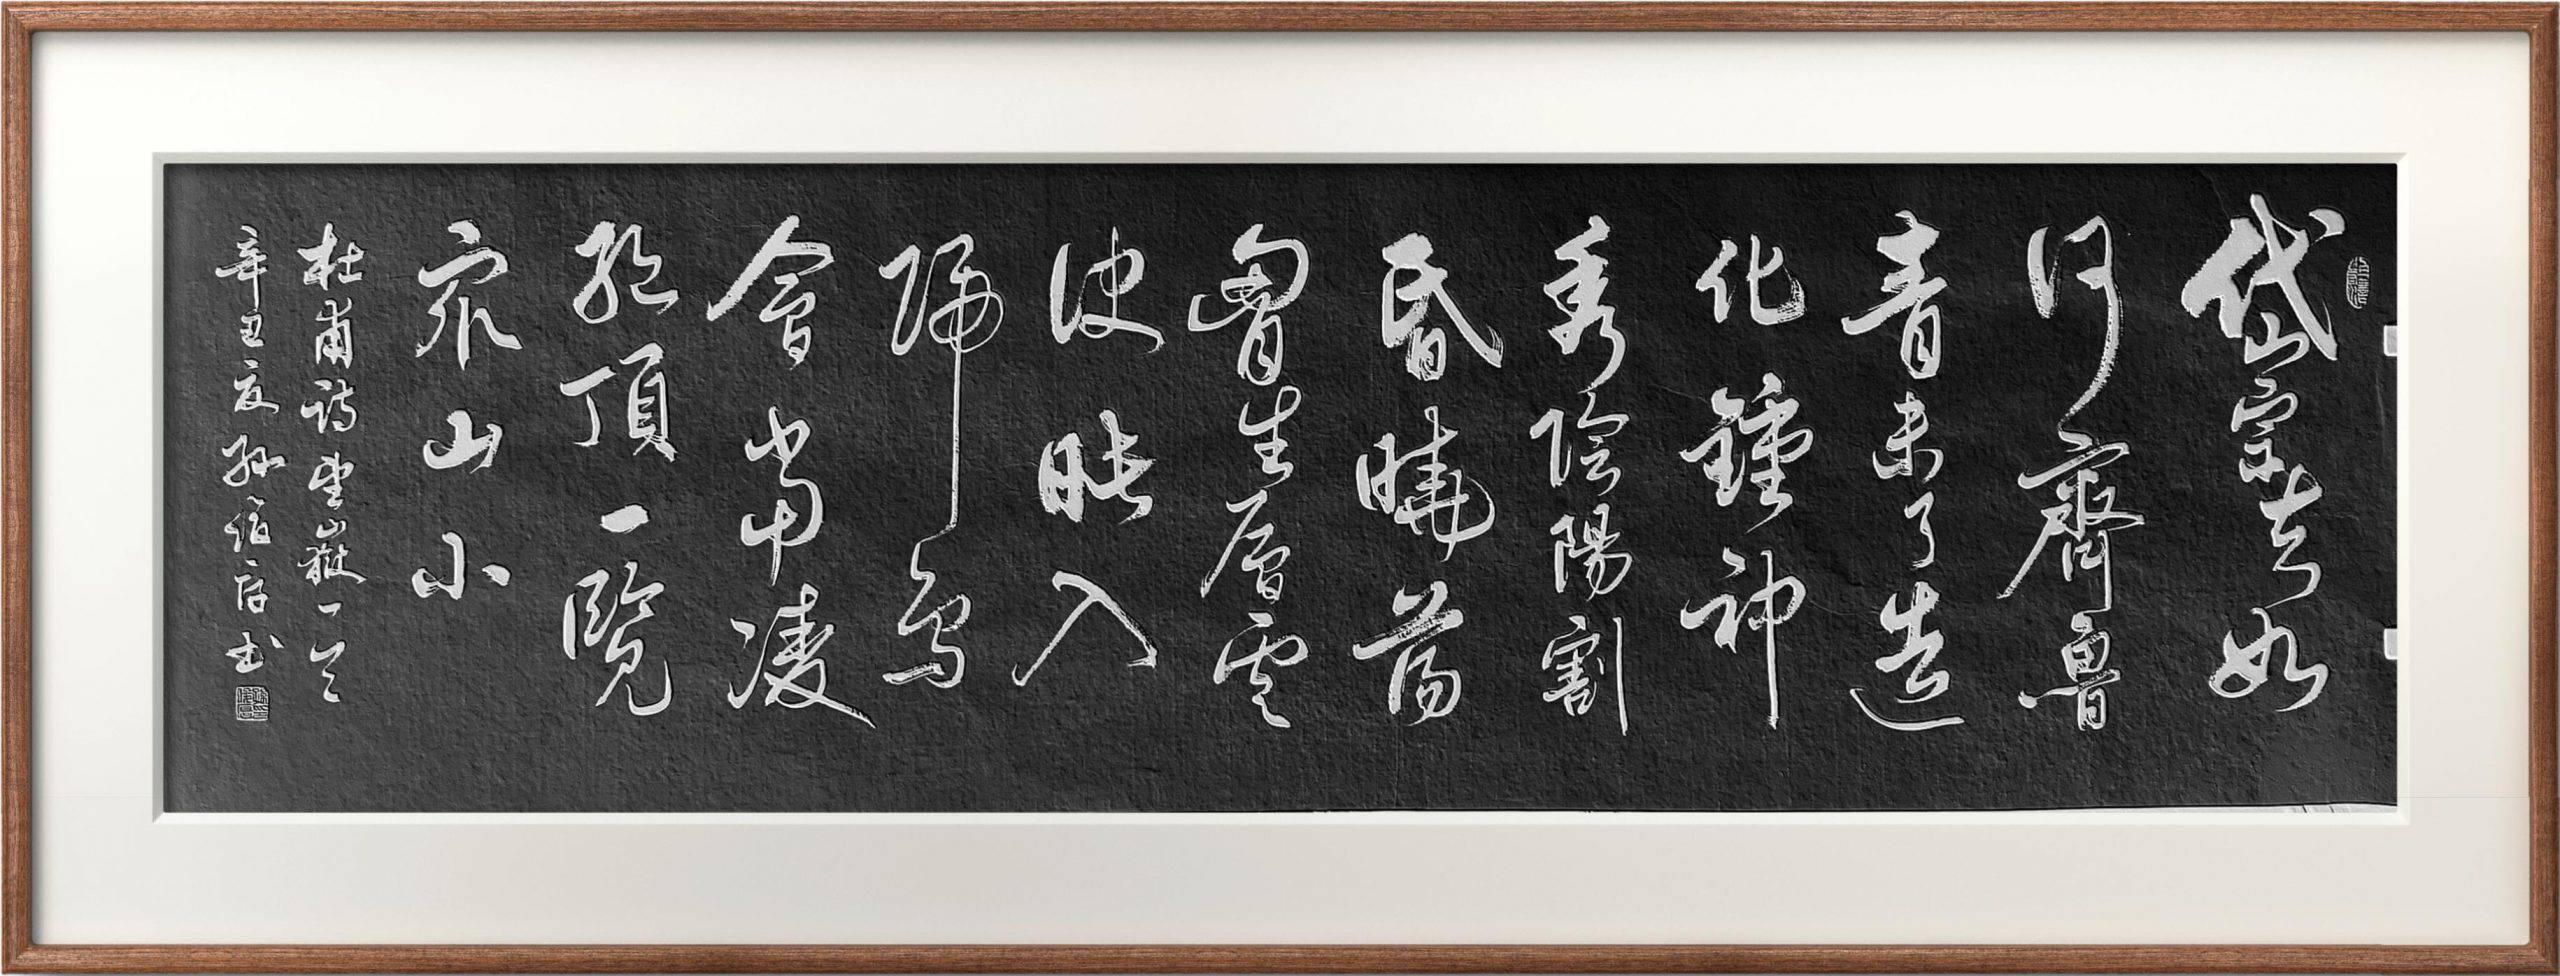 岱宗夫如
何齊魯
青未了造
化鍾神
秀陰陽割
昏曉蕩
胷生層雲
決眦入
歸鳥
會當凌
絕頂一覽
眾山小
杜甫詩望嶽一首
辛丑夏孫存书